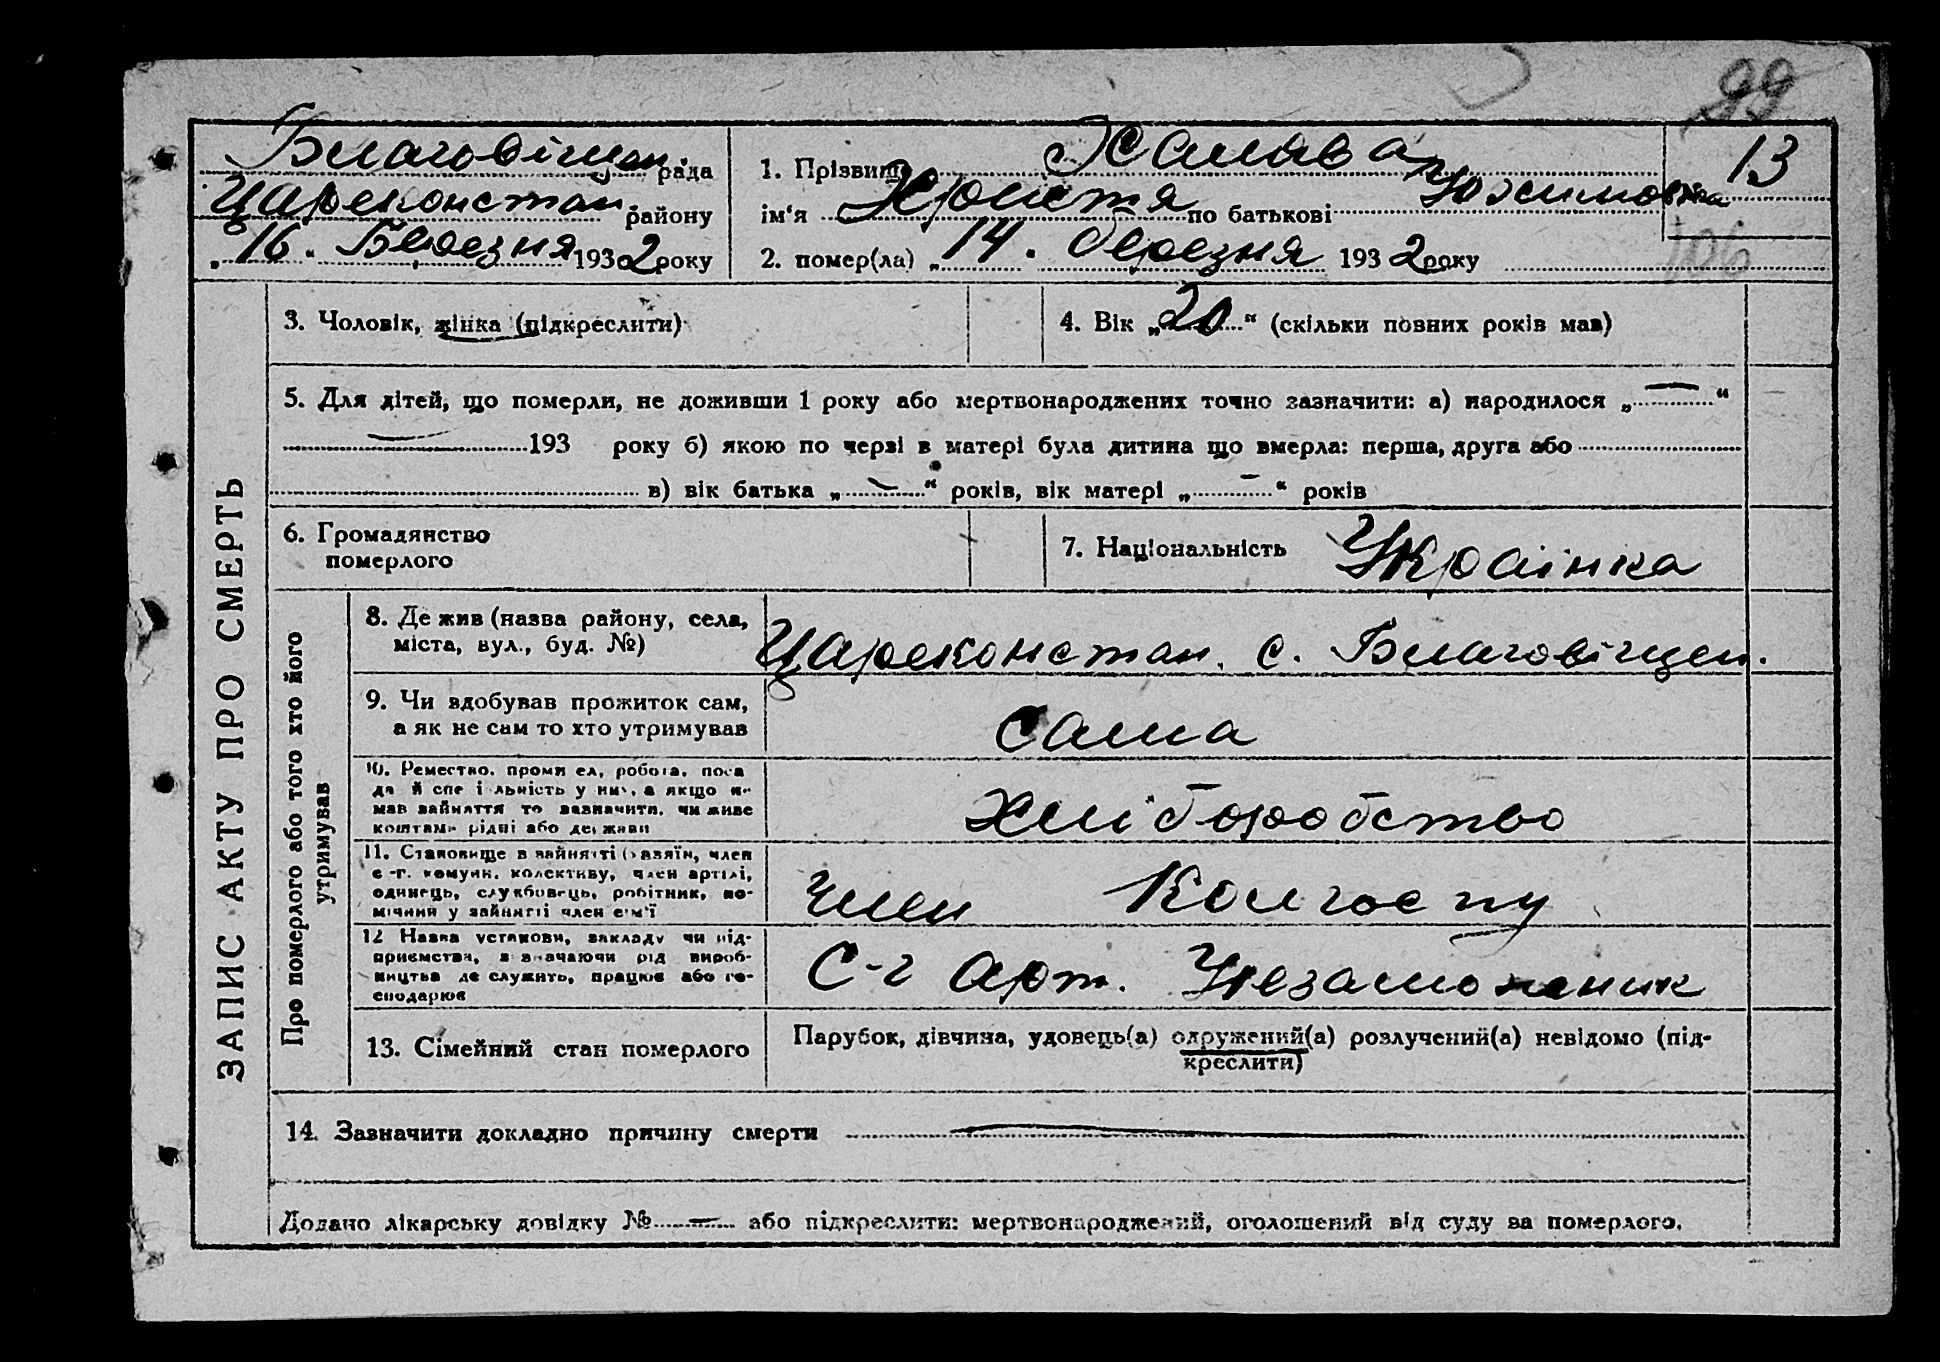 99
Благовіщен. рада
Цареконстан. району
„16“ Березня 1932 року
1. Прізвище Халява
ім‘я Христя по батькові
2. помер(ла) „14“ березня 1932 року
13
106
ЗАПИС АКТУ ПРО СМЕРТЬ
3. Чоловік, жінка (підкреслити)
4. Вік „20“ (скільки повних років мав)
5. Для дітей, що померли, не доживши 1 року або мертвонароджених точно зазначити: а) народилося „—“
— 193 року б) якою по черзі в матері була дитина що вмерла: перша, друга або
в) вік батька „—“ років, вік матері „—“ років
6. Громадянство
померлого
7. Національність Українка
Про померлого або того хто його
утримував
8. Де жив (назва району, села,
міста, вул., буд. №)
Цареконстан. с. Благовіщен.
9. Чи вдобував прожиток сам,
а як не сам то хто утримував
сама
10. Ремество, промисел, робота, поса
да й спеціальність у них, а якщо не
мав зайняття то зазначити, чи живе
коштами рідні або держави
Хліборобство
11. Становище в зайнятті (хазяїн, член
с.-г. комуни, колективу, член артілі,
одинець, службовець, робітник, по-
мічний у зайнятті член сім'ї
Член Колгоспу
12 Назва установи, закладу чи під-
приємства, зазначаючи рід вироб-
ництва де служить, працює або го-
сподарює
С-г арт. Незаможник
13. Сімейний стан померлого
Парубок, дівчина, удовець(а) одружений(а) розлучений(а) невідомо (під-
креслити)
14. Зазначити докладно причину смерти —
Додано лікарську довідку № — або підкреслити: мертвонароджений, оголошений від суду за померлого.